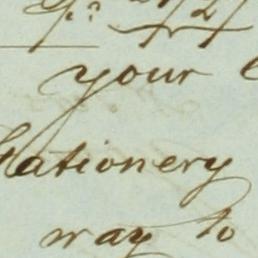 your
Stationery
way to